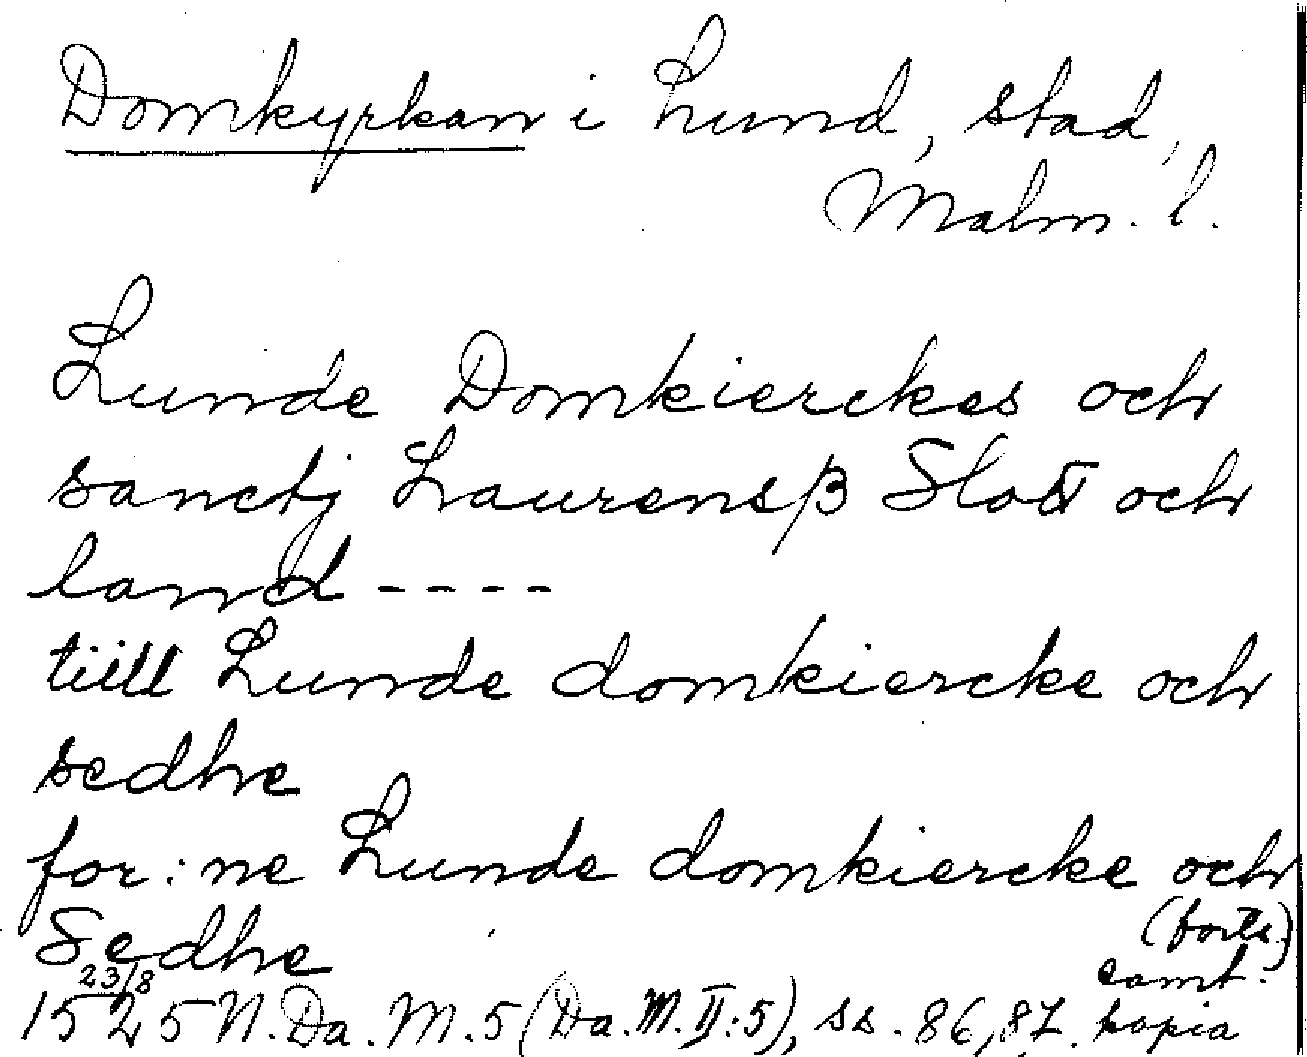 Domkyrkan i Lund, stad,
Malm. l.
Lunde Domkierckes och
sanctj Laurensß Slott och
land ----
tiill Lunde domkiercke och
sedhe
for:ne Lunde domkiercke och
Sedhe
(forts.)
23/8
samt.
1525 N. Da. M. 5 (Da. M. II:5), ss. 86, 87. kopia